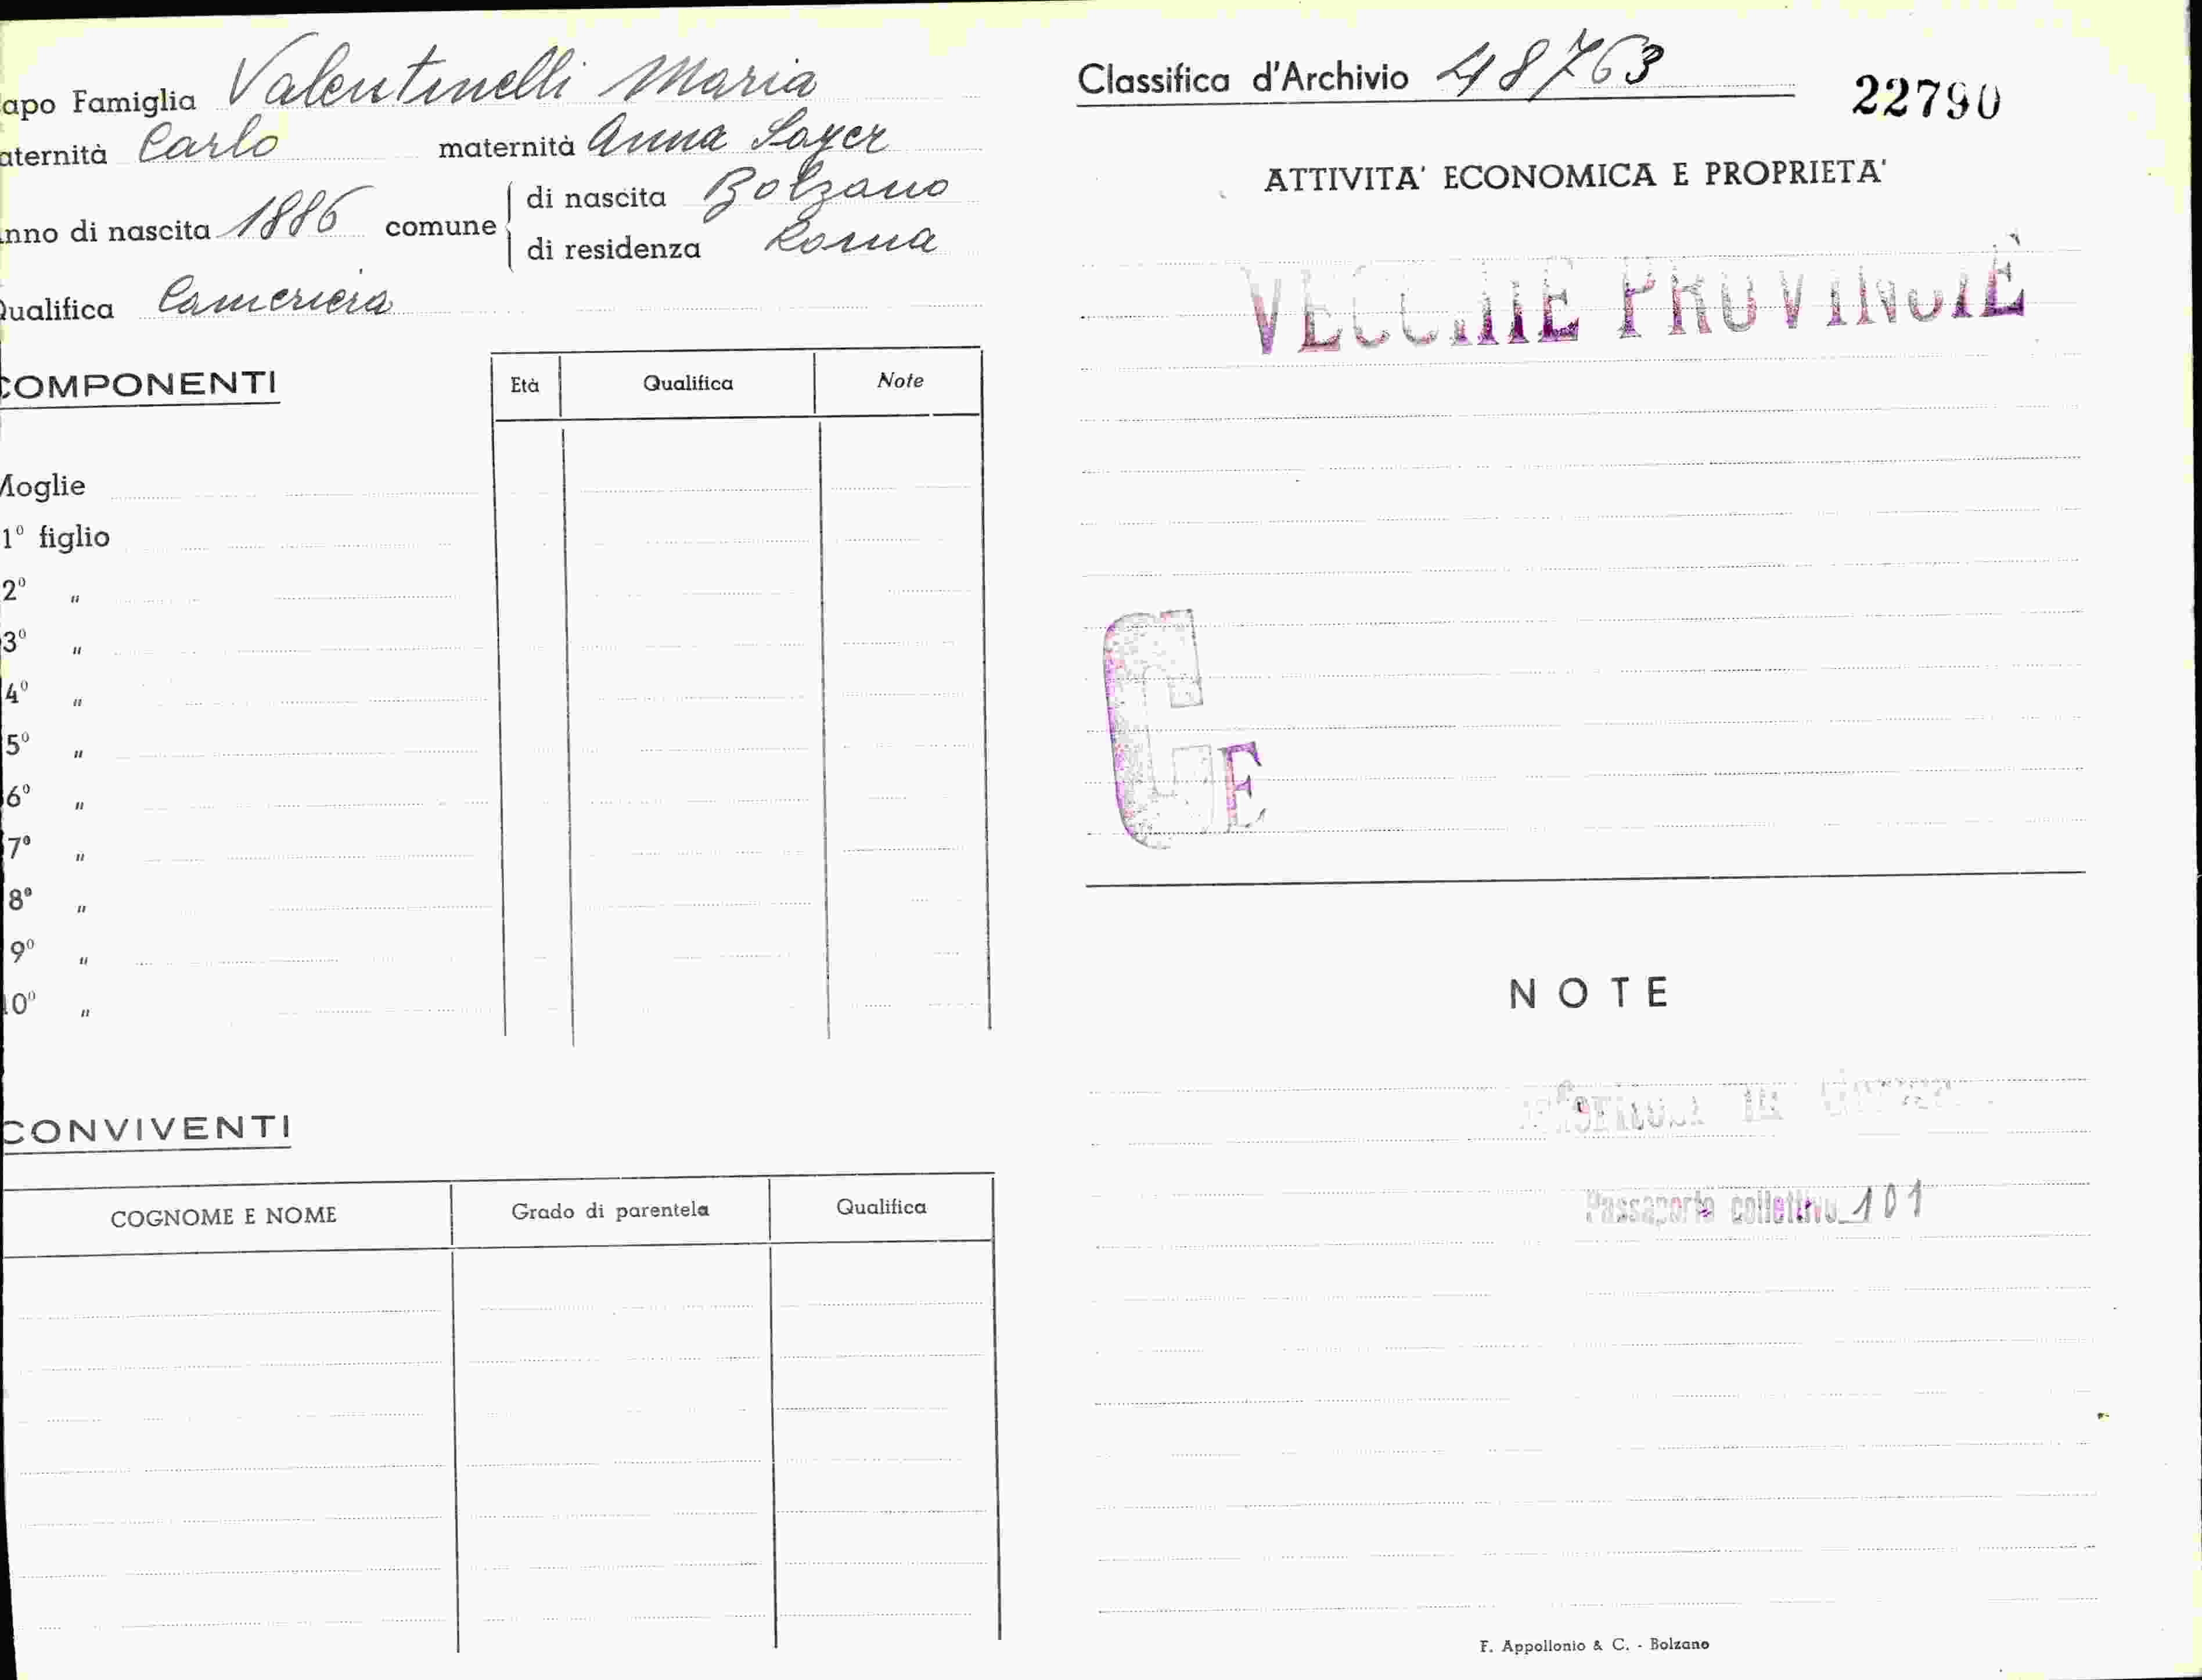 apo Famiglia Valentinelli Maria
aternità Carlo maternità Anna Sayer
nno di nascita 1886 comune di nascita Bolzano
di residenza Roma
Qualifica Cameriera
COMPONENTI
Età Qualifica Note
Moglie
1º figlio
2º "
3º "
4º "
5º "
6º "
7º "
8º "
9º "
10º "
CONVIVENTI
COGNOME E NOME Grado di parentela Qualifica
Classifica d'Archivio 48763
22790
ATTIVITA' ECONOMICA E PROPRIETA'
VECCHIE PROVINCIE
C E
NOTE
Passaporto collettivo 101
F. Appollonio & C. - Bolzano